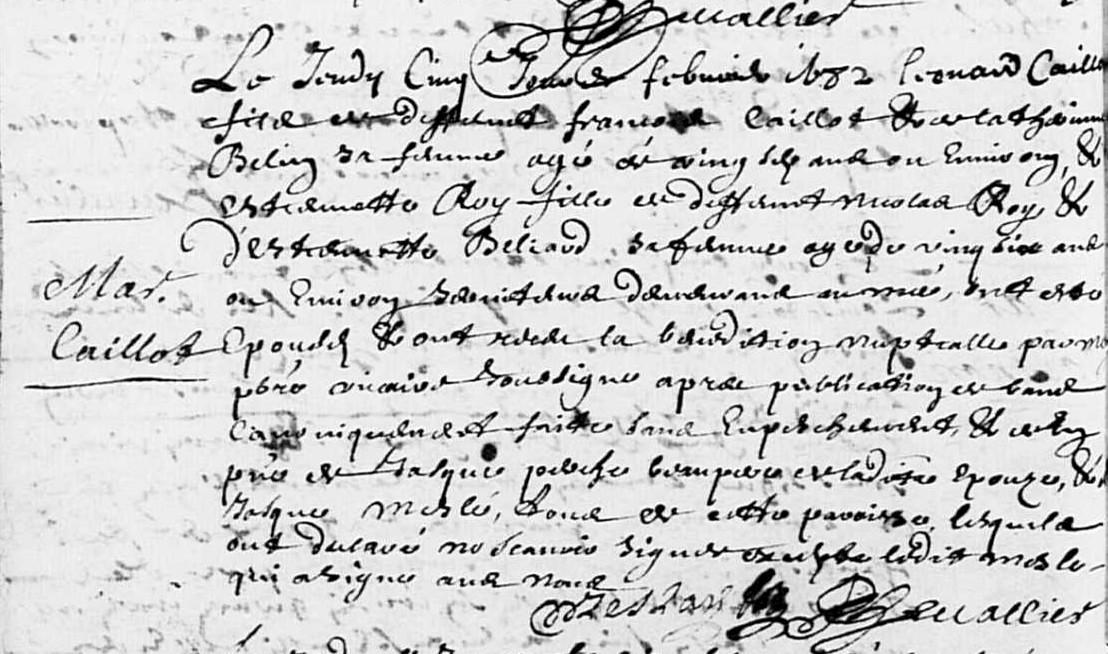 Chevallier
Le Jeudy Cinq febvrier 1682 Leonard Caillot
fils de deffunct francois Caillot & de Catherinne
Belin sa femme agé de vingt sept ans ou Environ, &
estiennette Roy fille de deffunct nicolas Roy &
d'Estiennette Beliard sa femme agee de vingt six ans
ou Environ demeurans au mée, ont esté
Epousés & ont receu la benediction nuptialle par moy
pbre vicaire soussigné apres publication de bans
Canoniquement faitte sans Enpeschement, & en
pñce de Jasque beaupere de laditte Epouze, &
Jasque Meslé, tous de cette paroisse lesquels
ont declaré ne scavoir signer excepté ledit mesle
qui a signé avec nous
Chevallier
Mar.
Caillot